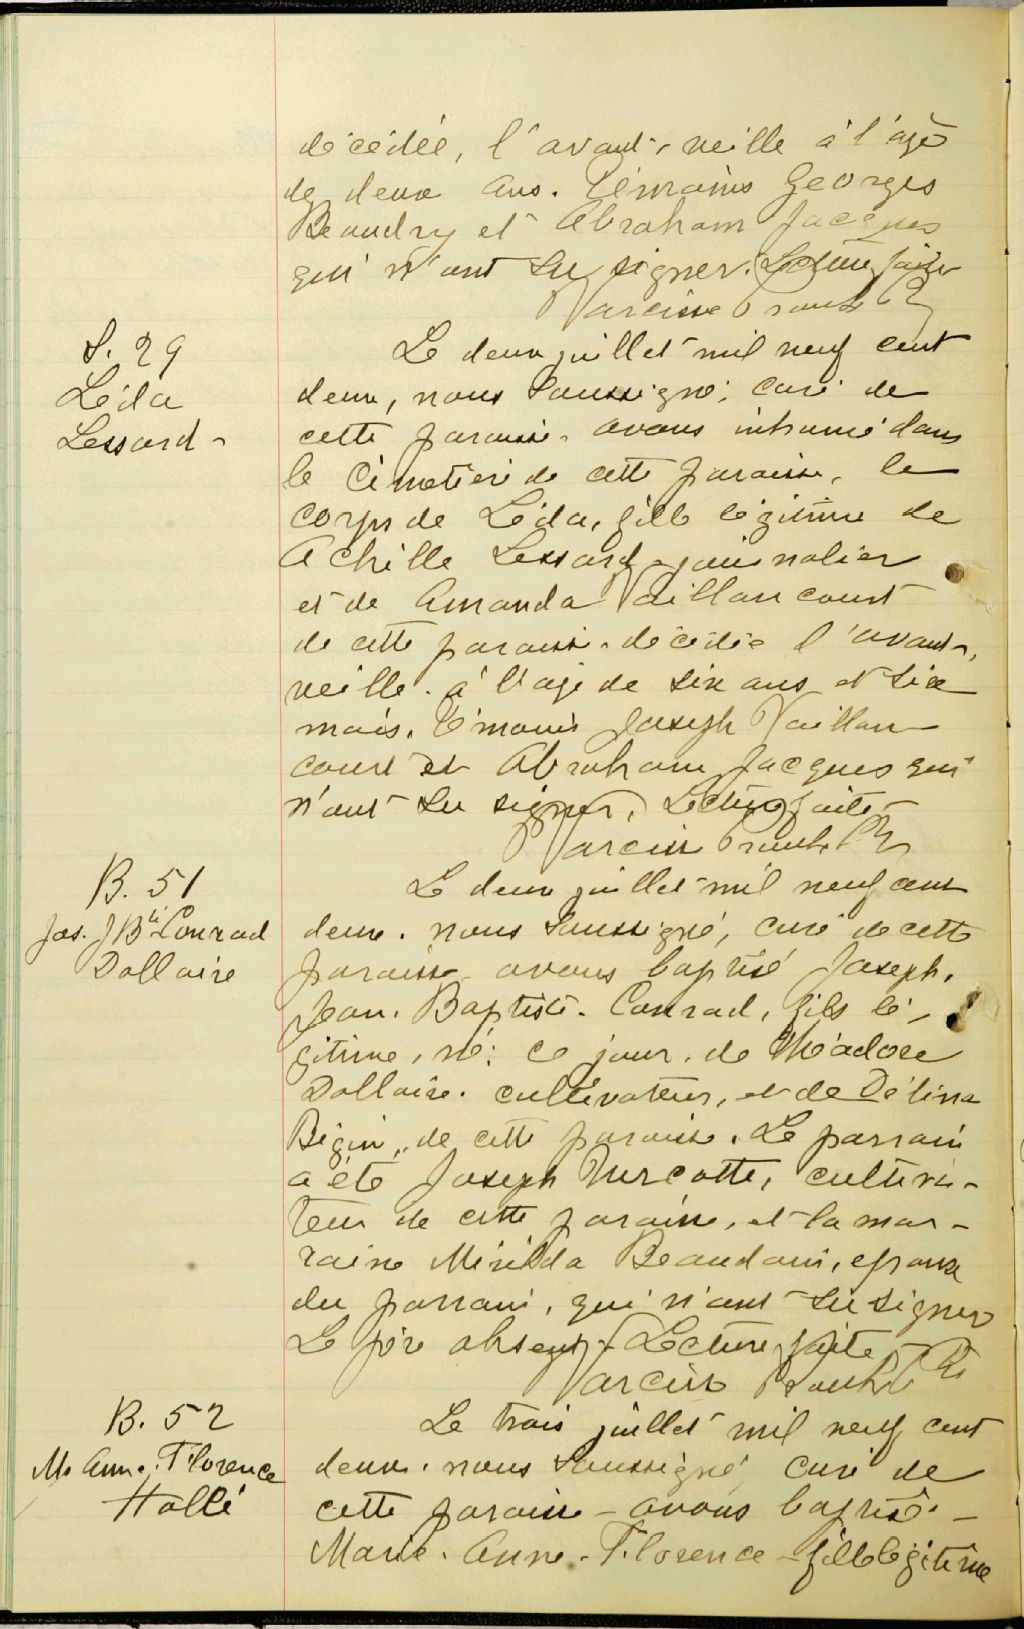 décédée, l'avant-veille à l'age
de deux ans. Témoins Georges
Beaudry et Abraham Jacques
qui n'ont su signer. Lecture faite
Narcisse Proulx Ptre
S. 29
Léda
Lessard-
Le deux juillet mil neuf cent
deux, nous soussigné, curé de
cette paroisse, avons inhumé dans
le Cimetière de cette paroisse, le
corps de Léda, fille légitime de
Achille Lessard, journalier
et de Amanda Vaillancourt
de cette paroisse, décédée l'avant-
veille, à l'age de six ans et six
mois. Témoins Joseph Vaillan
court et Abraham Jacques qui
n'ont su signer, Lecture faite-
Narcisse Proulx Ptre
B. 51
Jos. J Bte Conrad
Dallaire
Le deux juillet mil neuf cent
deux, nous soussigné, curé de cette
paroisse avons baptisé Joseph,
Jean, Baptiste, Conrad, fils lé-
gitime, né ce jour, de Théodore
Dallaire, cultivateur, et de Délina
Bégin, de cette paroisse. Le parrain
a été Joseph Turcotte, cultiva-
teur de cette paroisse, et la mar-
raine Mérilda Beaudoin, épouse
du parrain, qui n'ont su signer
Le père absent. Lecture faite
Narcisse Proulx Ptre
B. 52
M. Anne. Florence
Hallé
Le trois juillet mil neuf cent
deux, nous soussigné curé de
cette paroisse - avons baptisé -
Marie. Anne. Florence - fille légitime